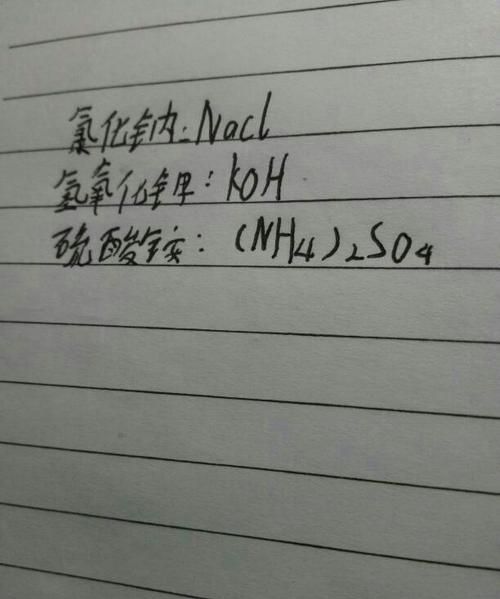 氯化钠:Nacl
氢氧化钾:KOH
硫酸铵:(NH₄)₂SO₄